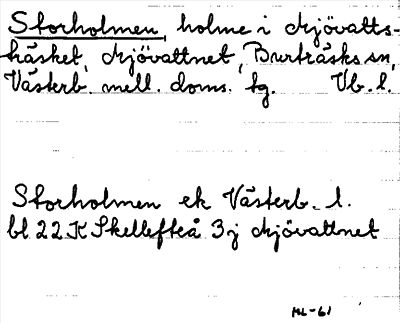 Storholmen, holme i Mjövatts-
träsket, Mjövattnet, Burträsks sn,
Västerb. mell. doms. tg. Vb. l.
Storholmen ek Västerb. l.
bl 22 K Skellefteå 3j Mjövattnet
ML-61